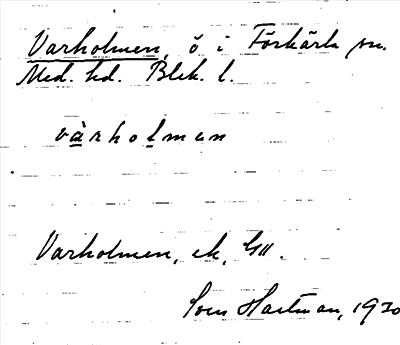 Varholmen, ö i Förkärla sn.
Med. hd. Blek. l.
vàrholmen
Varholmen, ek, GII.
Sven Hartman, 1930